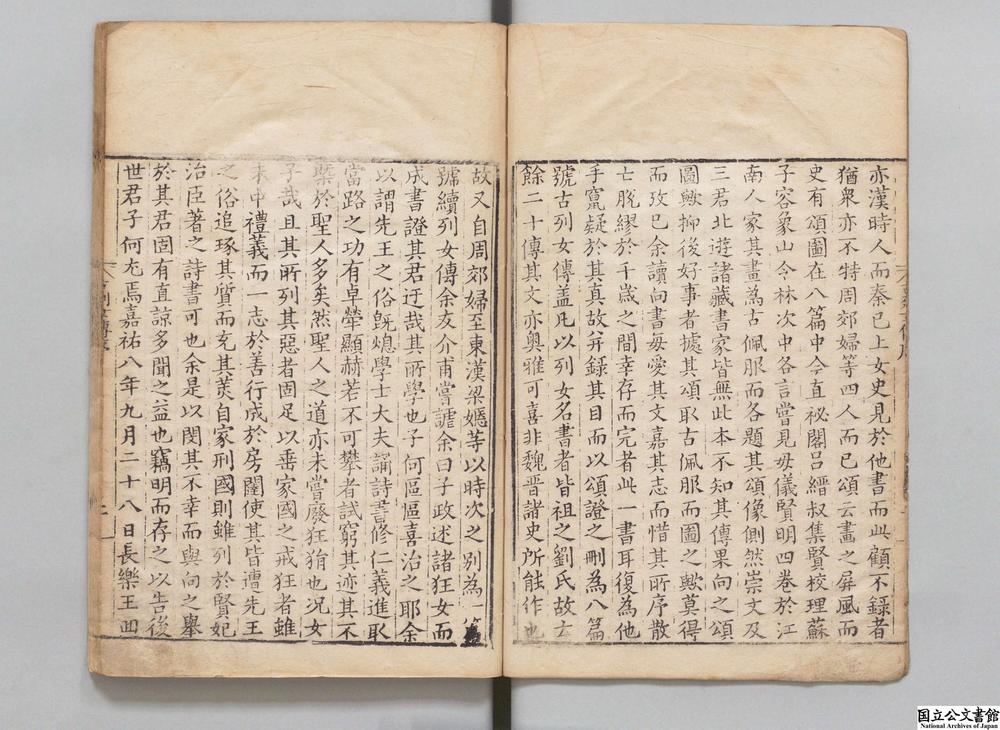 亦漢時人而秦已上女史見於他書而此顧不録者
猶衆亦不特周郊婦等四人而已頌云畫之屏風而
史有頌圖在八篇中今直祕閣吕縉叔集賢校理蘇
子容象山令林次中各言嘗見毋儀賢明四卷於江
南人家其畫為古佩服而各題其頌像側然崇文及
三君北遊諸藏書家皆無此本不知其傳果向之頌
圖歟抑後好事者據其頌取古佩服而圖之歟莫得
而攷已余讀向書毎愛其文嘉其志而惜其所序散
亡脱繆於千歳之間幸存而完者此一書耳復為他
手竄疑於其真故并録其目而以頌證之刪為八篇
號古列女傳盖凡以列女名書者皆祖之劉氏故云
餘二十傳其文亦奥雅可喜非魏晋諸史所能作也
故又自周郊婦至東漢梁嫕等以時次之别為一篇
號續列女傳余友介甫嘗謔余曰子政述諸狂女而
成書證其君迂哉其所學也子何區區喜治之耶余
以謂先王之俗既熄學士大夫誦詩書修仁義進取
當路之功有卓犖顯赫若不可攀者試窮其迹其不
槩於聖人多矣然聖人之道亦未嘗廢狂狷也况女
子哉且其所列其惡者固足以垂家國之戒狂者雖
未中禮義而一志於善行成於房闥使其皆遭先王
之俗追琢其質而充其美自家刑國則雖列於賢妃
治臣著之詩書可也余是以閔其不幸而與向之舉
於其君固有直諒多聞之益也竊明而存之以告後
世君子何尤焉嘉祐八年九月二十八日長樂王回
古列女傳序
二
国立公文書館
National Archives of Japan